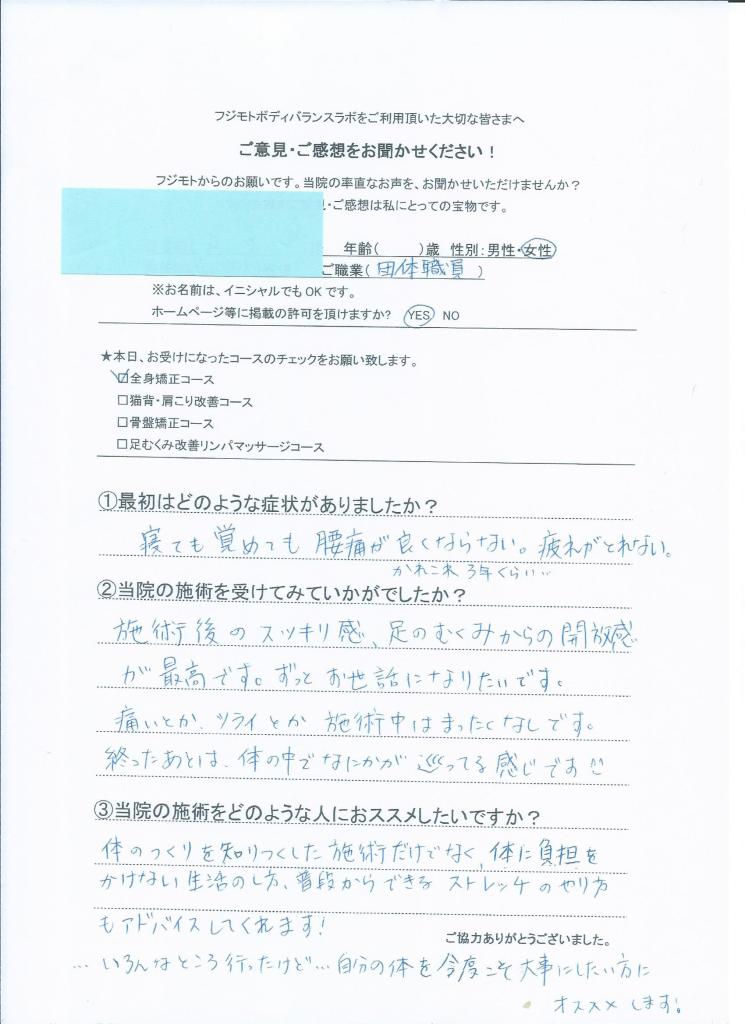 フジモトボディバランスラボをご利用頂いた大切な皆さまへ
ご意見・ご感想をお聞かせください！
フジモトからのお願いです。当院の率直なお声を、お聞かせいただけませんか？
・ご感想は私にとっての宝物です。
年齢(　　　)歳 性別：男性・女性
ご職業( 団体職員 )
※お名前は、イニシャルでもOKです。
ホームページ等に掲載の許可を頂けますか？ YES NO
★本日、お受けになったコースのチェックをお願い致します。
☑全身矯正コース
□猫背・肩こり改善コース
□骨盤矯正コース
□足むくみ改善リンパマッサージコース
①最初はどのような症状がありましたか？
寝ても覚めても腰痛が良くならない。疲れがとれない。
かれこれ3年くらい…
②当院の施術を受けてみていかがでしたか？
施術後のスッキリ感、足のむくみからの開放感
が最高です。ずっとお世話になりたいです。
痛いとか、ツライとか 施術中はまったくなしです。
終ったあとは、体の中でなにかが巡ってる感じです
③当院の施術をどのような人におススメしたいですか？
体のつくりを知りつくした施術だけでなく、体に負担を
かけない生活のし方、普段からできるストレッチのやり方
もアドバイスしてくれます！
ご協力ありがとうございました。
…いろんなところ行ったけど…自分の体を今度こそ大事にしたい方に
オススメします。